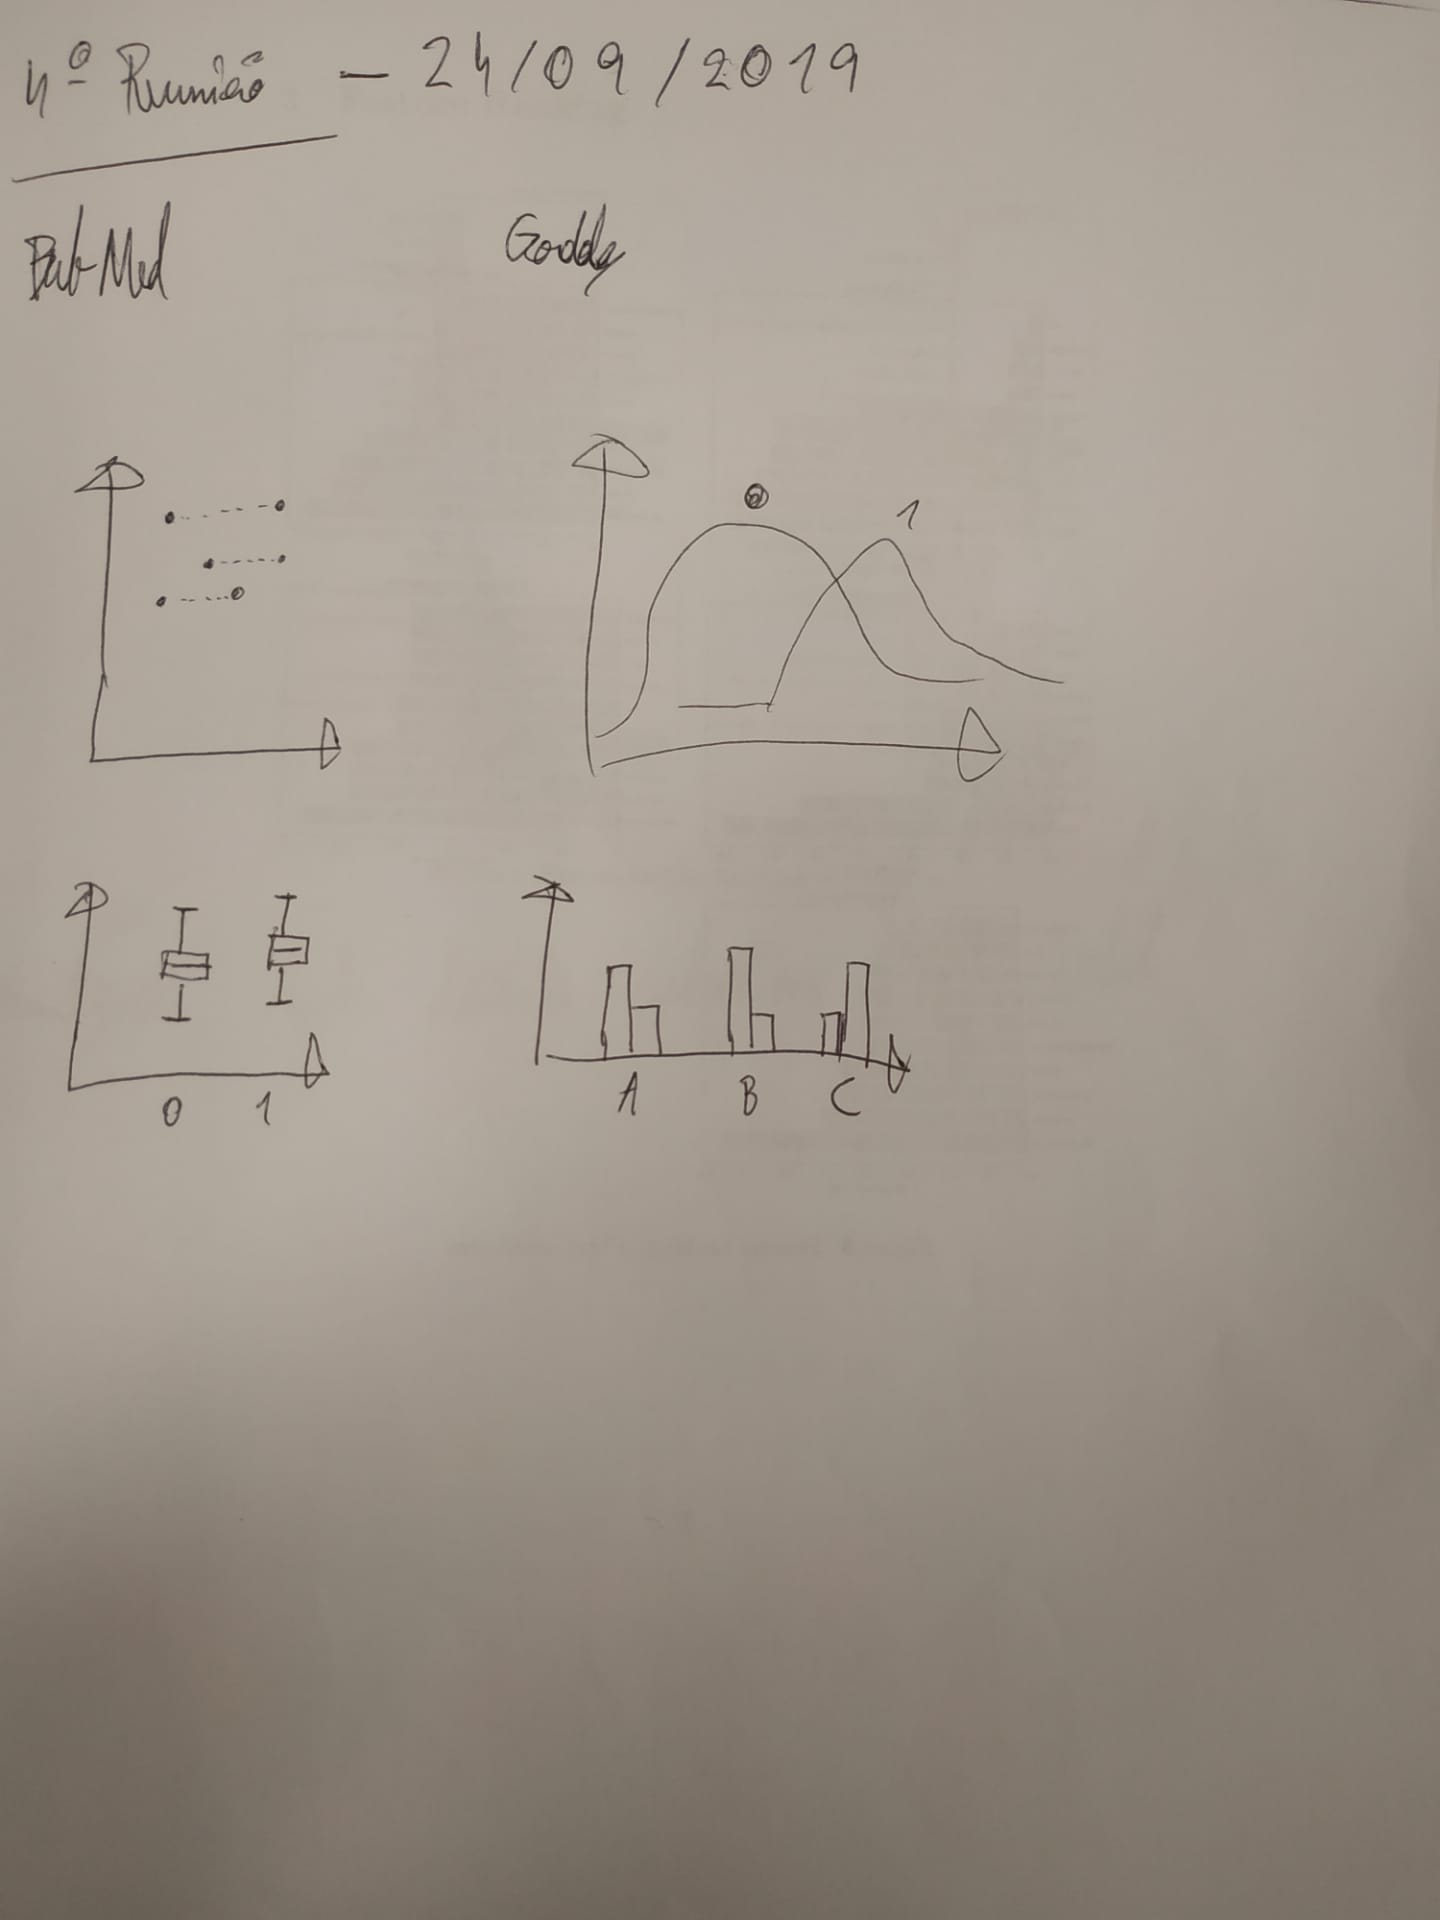 4º Reunião — 24/09/2019
PubMed
0
1
0 1
A B C